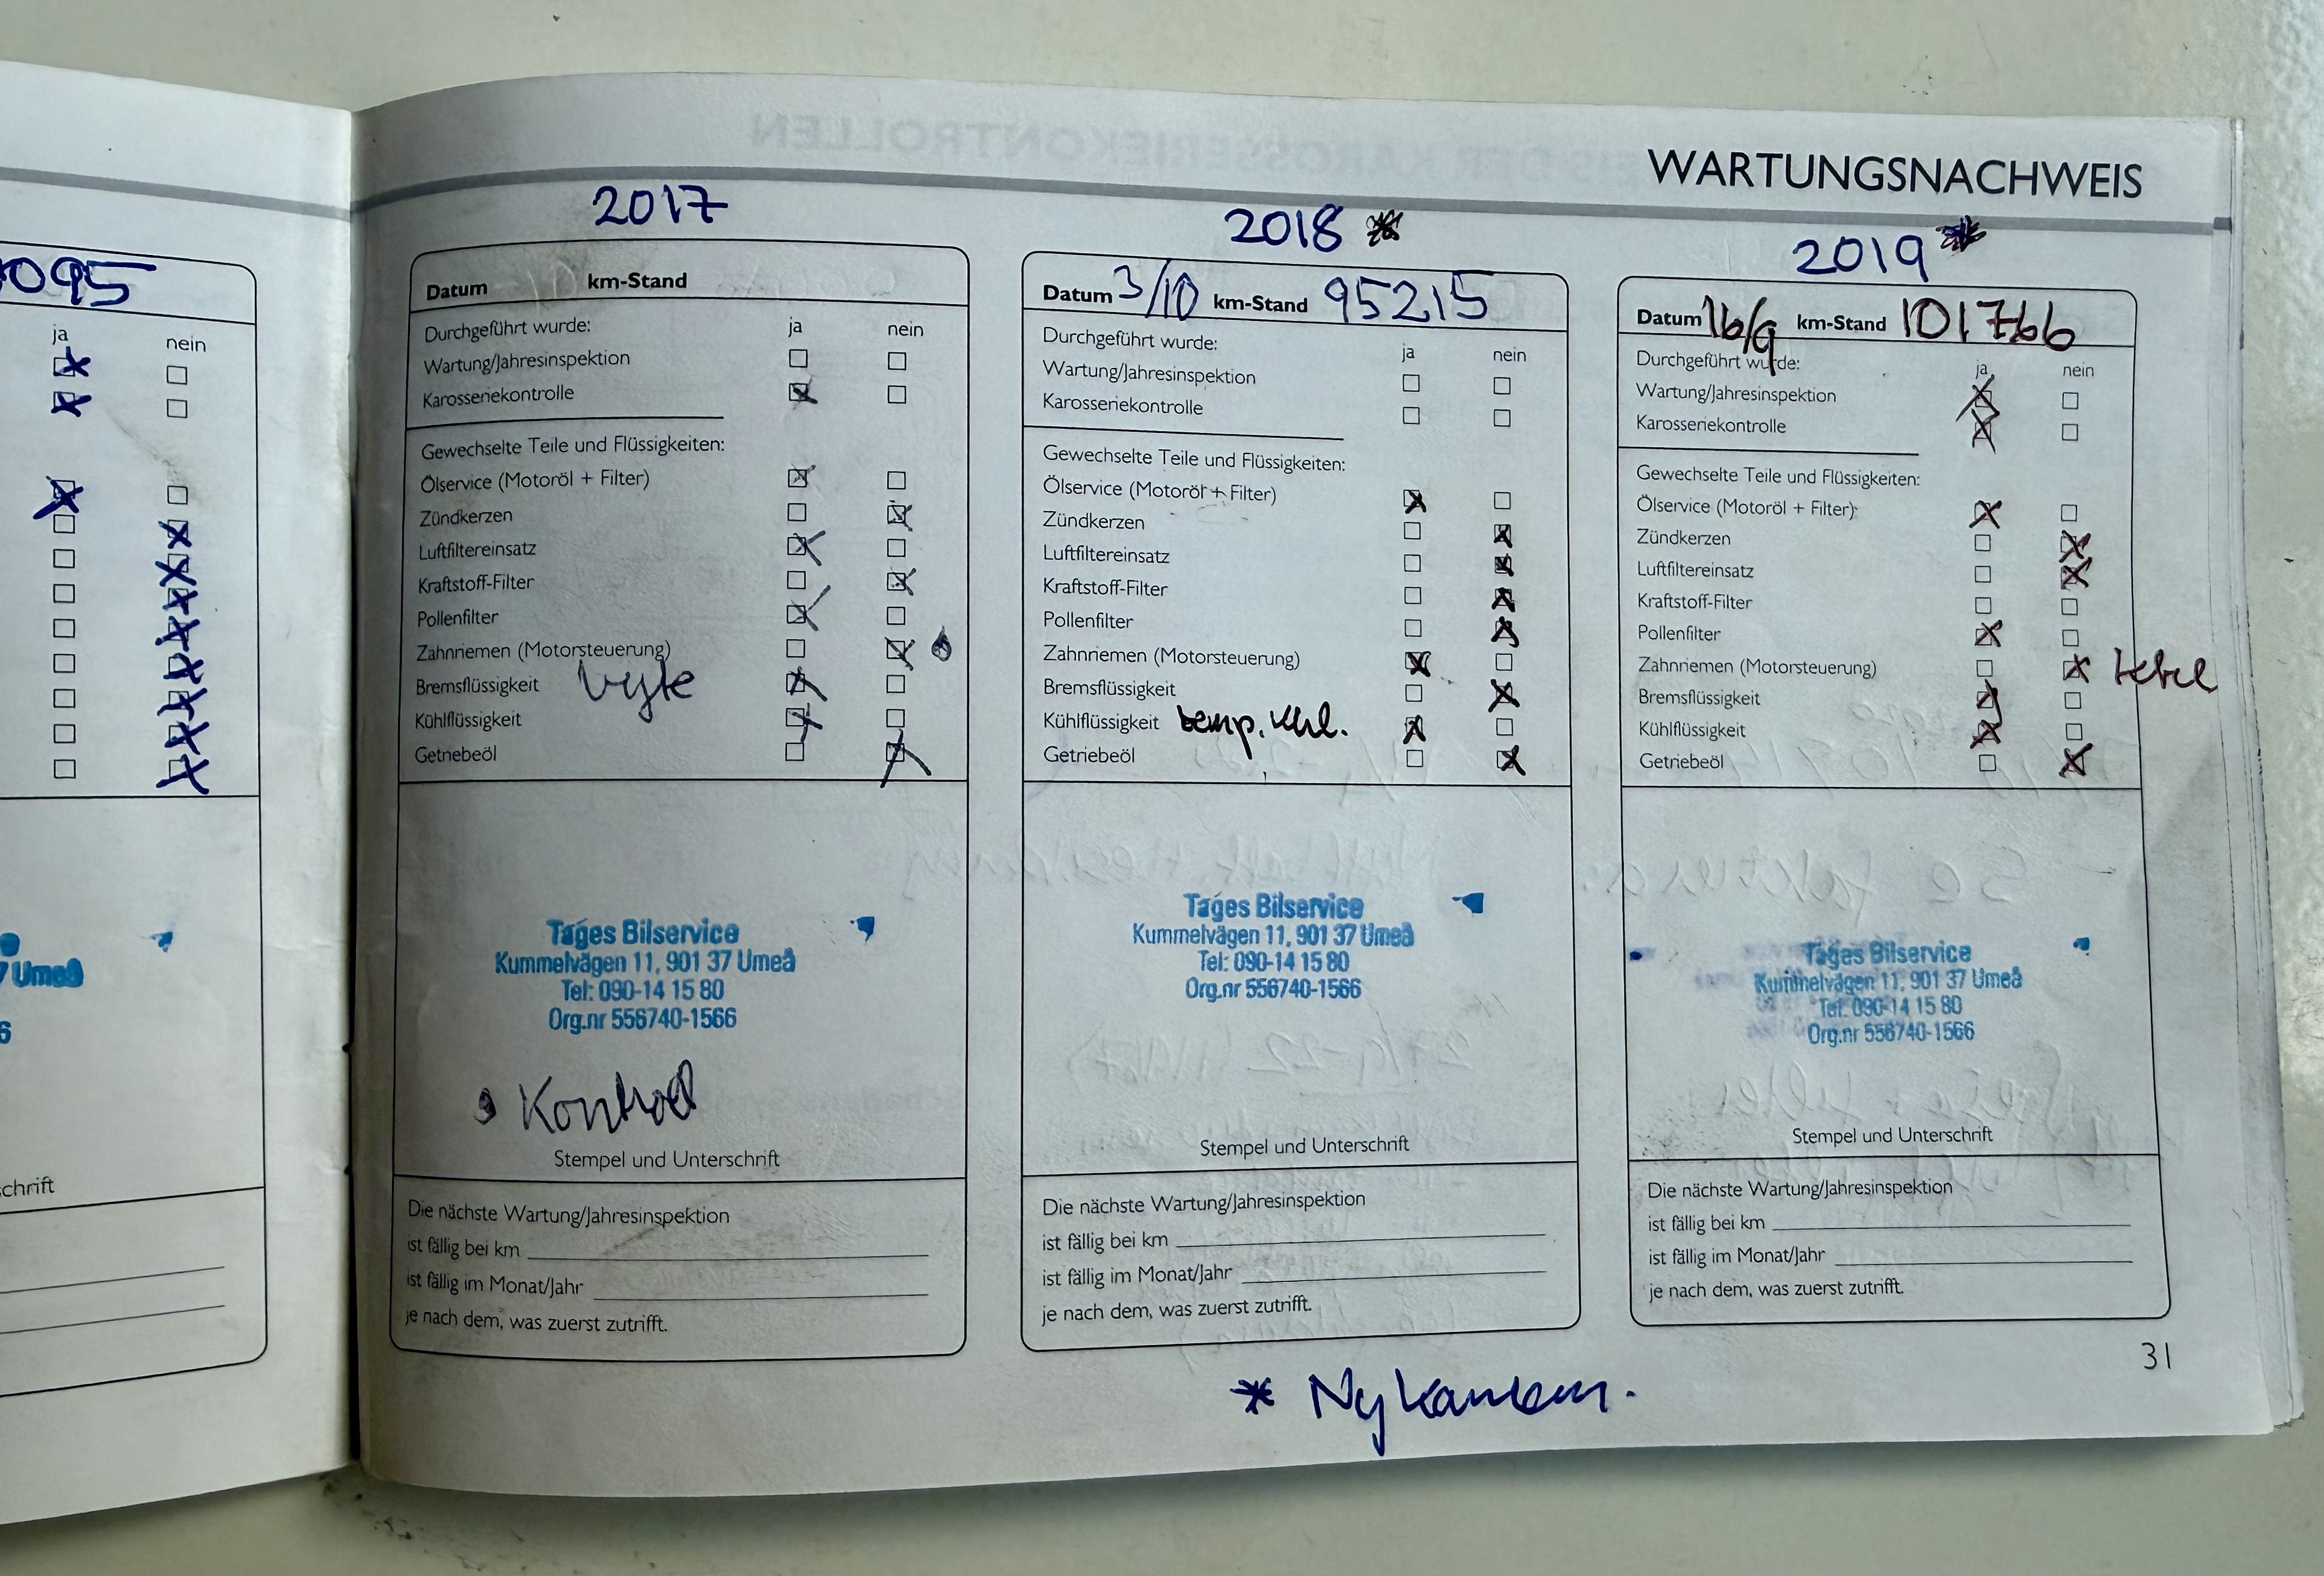 095
ja
nein
7 Umeå
6
schrift
WARTUNGSNACHWEIS
2017
Datum km-Stand
Durchgeführt wurde: ja nein
Wartung/Jahresinspektion
Karosseriekontrolle
Gewechselte Teile und Flüssigkeiten:
Ölservice (Motoröl + Filter)
Zündkerzen
Luftfiltereinsatz
Kraftstoff-Filter
Pollenfilter
Zahnriemen (Motorsteuerung)
Bremsflüssigkeit byte
Kühlflüssigkeit
Getriebeöl
Tages Bilservice
Kummelvägen 11, 901 37 Umeå
Tel: 090-14 15 80
Org.nr 556740-1566
Kontroll
Stempel und Unterschrift
Die nächste Wartung/Jahresinspektion
ist fällig bei km
ist fällig im Monat/Jahr
je nach dem, was zuerst zutrifft.
2018 *
Datum 3/10 km-Stand 95215
Durchgeführt wurde: ja nein
Wartung/Jahresinspektion
Karosseriekontrolle
Gewechselte Teile und Flüssigkeiten:
Ölservice (Motoröl + Filter)
Zündkerzen
Luftfiltereinsatz
Kraftstoff-Filter
Pollenfilter
Zahnriemen (Motorsteuerung)
Bremsflüssigkeit
Kühlflüssigkeit temp.
Getriebeöl
Tages Bilservice
Kummelvägen 11, 901 37 Umeå
Tel: 090-14 15 80
Org.nr 556740-1566
Stempel und Unterschrift
Die nächste Wartung/Jahresinspektion
ist fällig bei km
ist fällig im Monat/Jahr
je nach dem, was zuerst zutrifft.
2019 *
Datum 16/9 km-Stand 101766
Durchgeführt wurde: ja nein
Wartung/Jahresinspektion
Karosseriekontrolle
Gewechselte Teile und Flüssigkeiten:
Ölservice (Motoröl + Filter)
Zündkerzen
Luftfiltereinsatz
Kraftstoff-Filter
Pollenfilter
Zahnriemen (Motorsteuerung)
Bremsflüssigkeit
Kühlflüssigkeit
Getriebeöl
Tages Bilservice
Kummelvägen 11, 901 37 Umeå
Tel: 090-14 15 80
Org.nr 556740-1566
Stempel und Unterschrift
Die nächste Wartung/Jahresinspektion
ist fällig bei km
ist fällig im Monat/Jahr
je nach dem, was zuerst zutrifft.
31
* Ny kamrem.